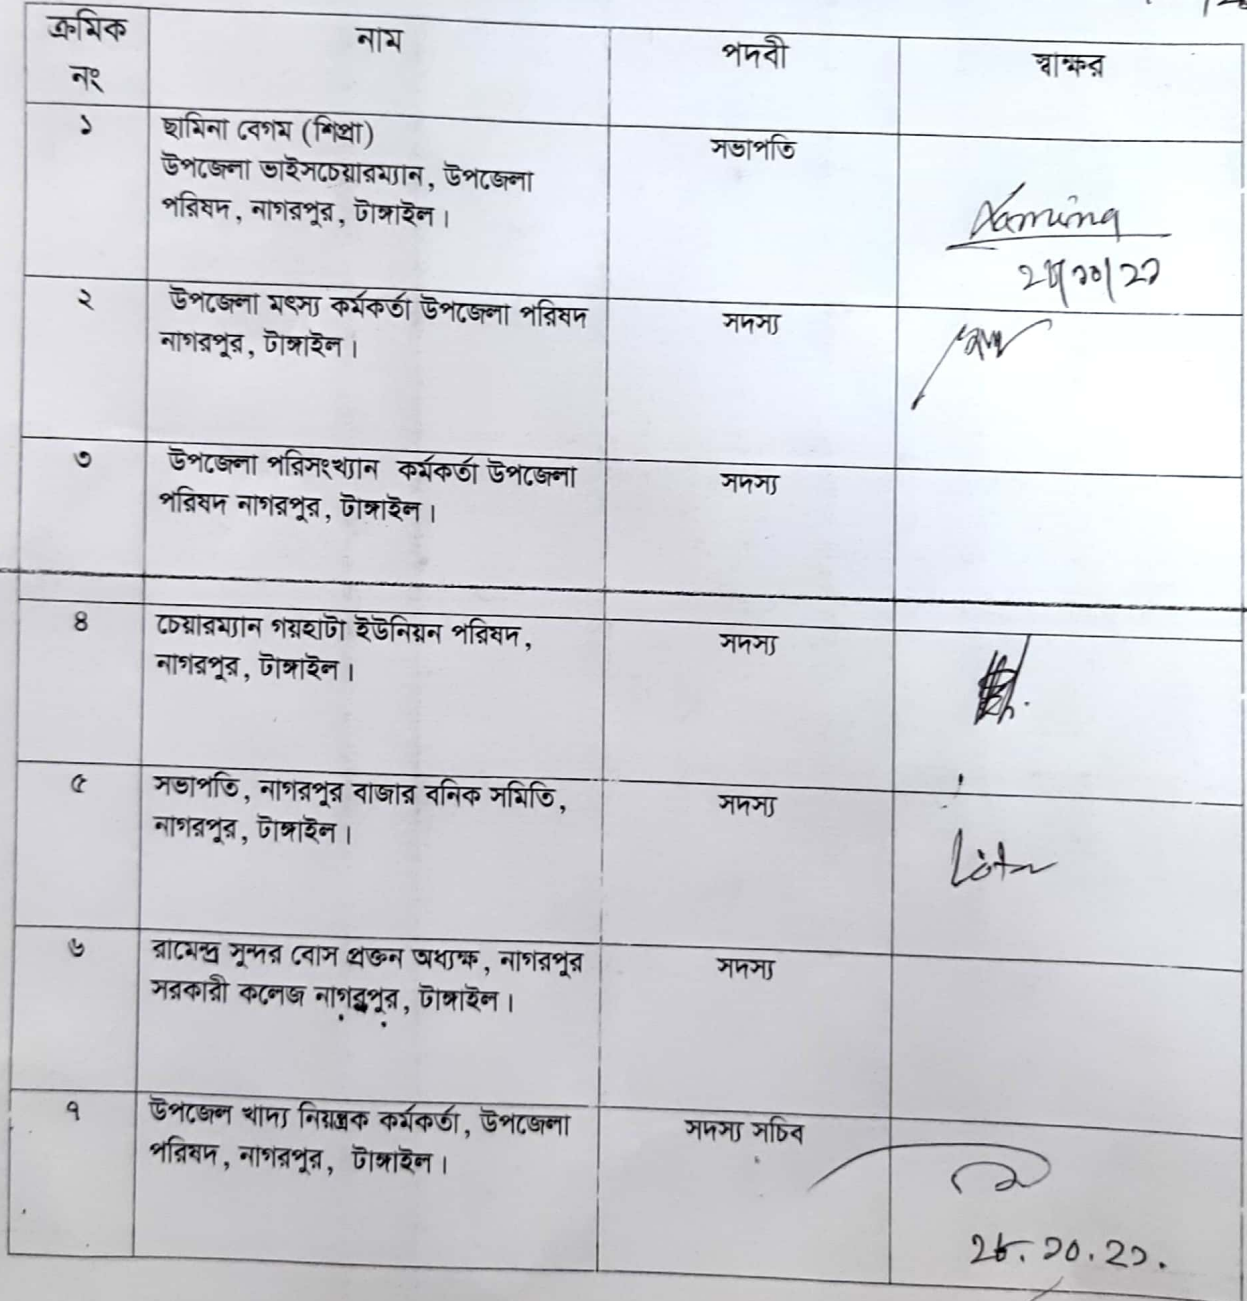 ক্রমিক
নং
নাম
পদবী
স্বাক্ষর
১
ছামিনা বেগম (শিপ্রা)
উপজেলা ভাইসচেয়ারম্যান, উপজেলা
পরিষদ, নাগরপুর, টাঙ্গাইল।
সভাপতি
২
উপজেলা মৎস্য কর্মকর্তা উপজেলা পরিষদ
নাগরপুর, টাঙ্গাইল।
সদস্য
৩
উপজেলা পরিসংখ্যান কর্মকর্তা উপজেলা
পরিষদ নাগরপুর, টাঙ্গাইল।
সদস্য
৪
চেয়ারম্যান গয়হাটা ইউনিয়ন পরিষদ,
নাগরপুর, টাঙ্গাইল।
সদস্য
৫
সভাপতি, নাগরপুর বাজার বনিক সমিতি,
নাগরপুর, টাঙ্গাইল।
সদস্য
৬
রামেন্দ্র সুন্দর বোস প্রক্তন অধ্যক্ষ, নাগরপুর
সরকারী কলেজ নাগরপুর, টাঙ্গাইল।
সদস্য
৭
উপজেল খাদ্য নিয়ন্ত্রক কর্মকর্তা, উপজেলা
পরিষদ, নাগরপুর, টাঙ্গাইল।
সদস্য সচিব